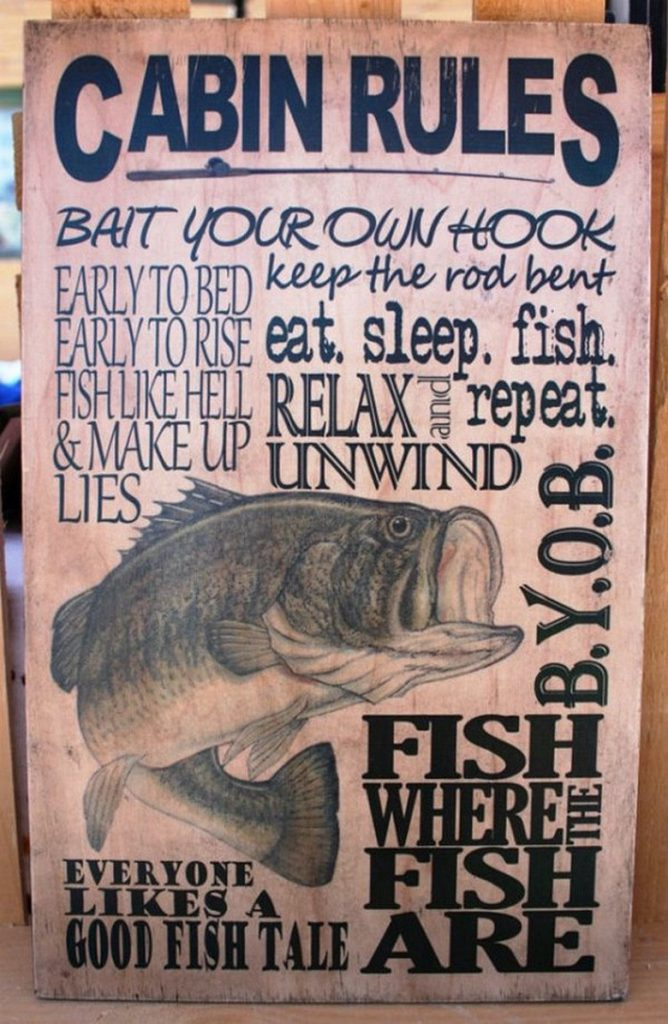 CABIN RULES
BAIT YOUR OWN HOOK
EARLY TO BED
EARLY TO RISE
FISH LIKE HELL
& MAKE UP
LIES
keep the rod bent
eat. sleep. fish.
repeat.
RELAX and
UNWIND
B.Y.O.B.
FISH
WHERE THE
FISH
ARE
EVERYONE
LIKES A
GOOD FISH TALE